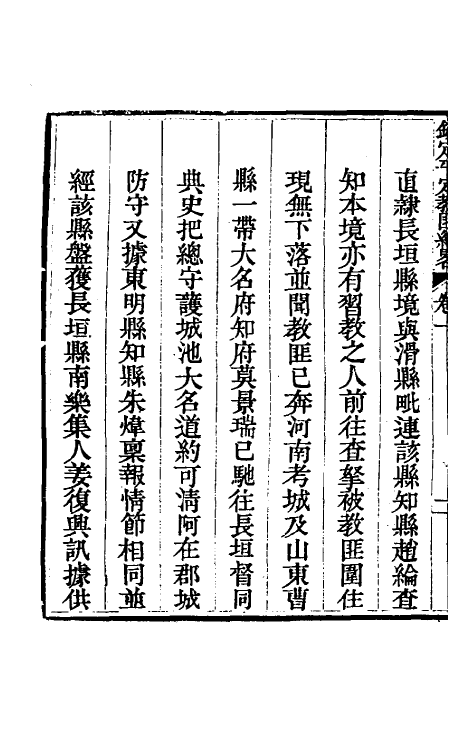 欽定平定教匪紀略 卷一 二
直隸長垣縣境與滑縣毗連該縣知縣趙綸查
知本境亦有習教之人前往查拏被教匪圍住
現無下落並聞教匪已奔河南考城及山東曹
縣一帶大名府知府莫景瑞已馳往長垣督同
典史把總守護城池大名道約可淸阿在郡城
防守又據東明縣知縣朱煒稟報情節相同並
經該縣盤獲長垣縣南樂集人姜復興訊據供